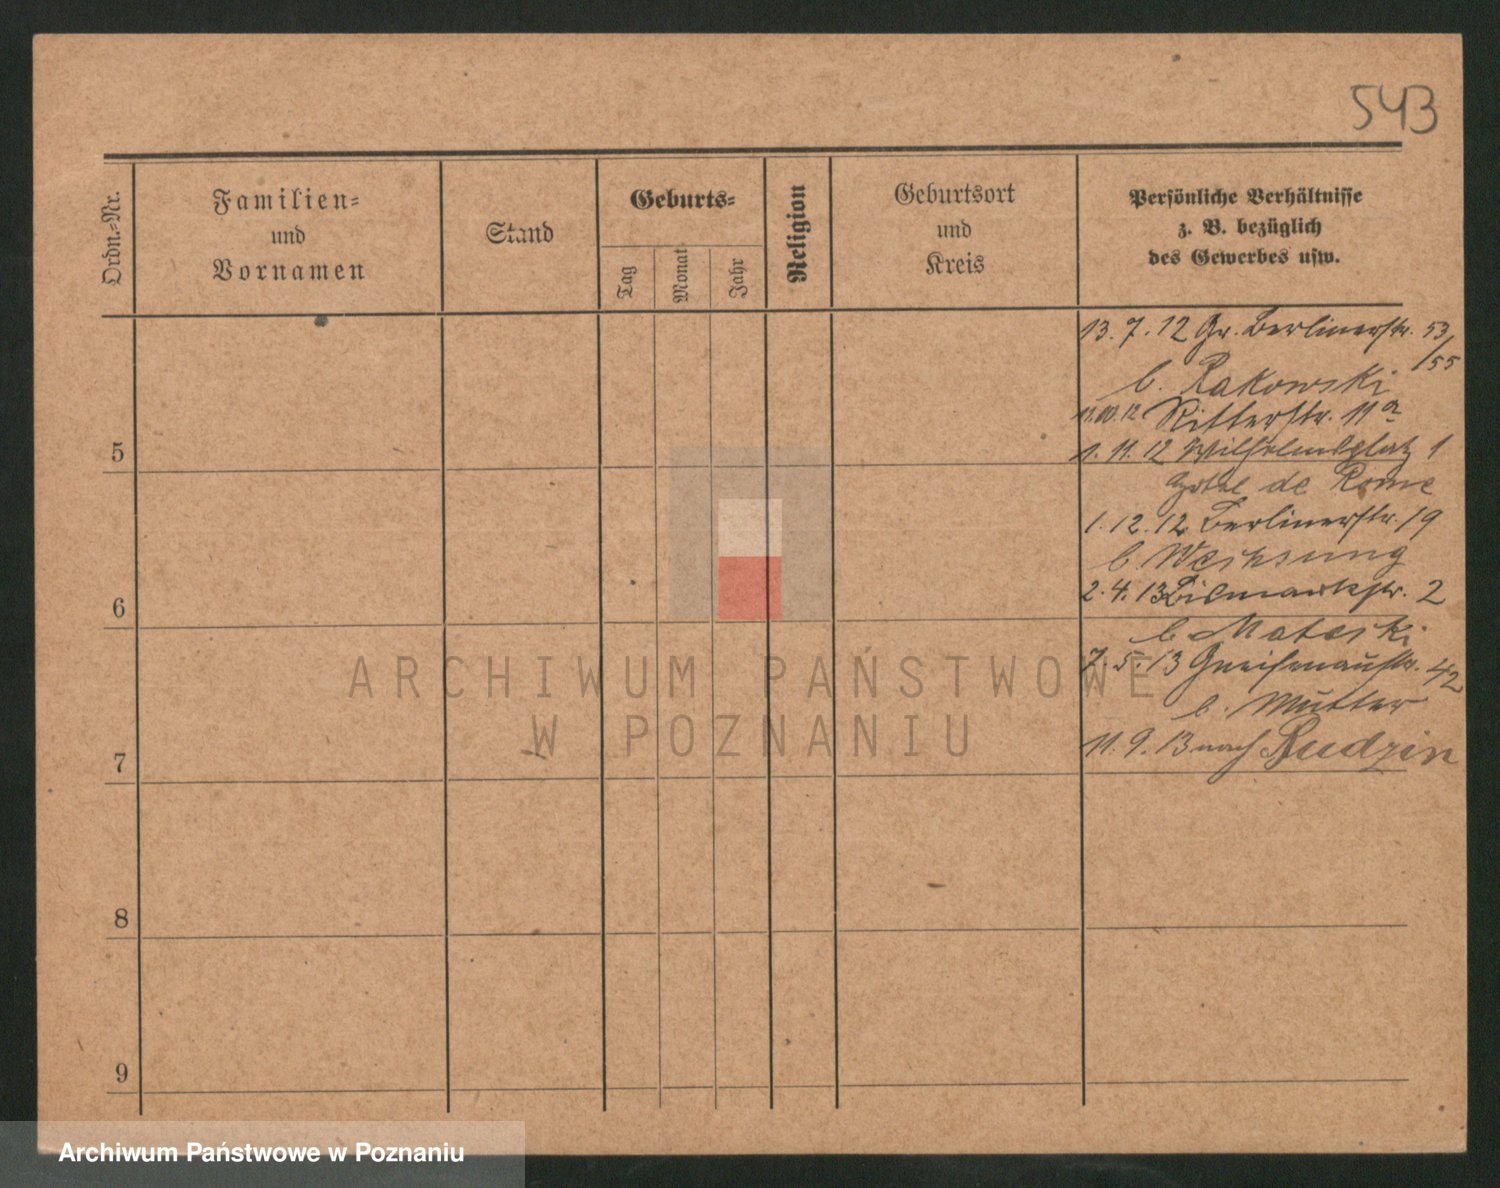 543
Ordn.-Nr.
Familien-
und
Vornamen
Stand
Geburts-
Tag
Monat
Jahr
Religion
Geburtsort
und
Kreis
Persönliche Verhältnisse
z. B. bezüglich
des Gewerbes usw.
13. 7. 12 Gr. Berlinerstr. 53
/55
b. Rakowski
12 Ritterstr. 11a
5
1. 11. 12 Wilhelmsplatz 1
Hotel de Rome
1. 12. 12 Berlinerstr. 19
b.
6
2. 4. 13 Bismarckstr. 2
b. Mateski
7. 5. 13 Gneisenaustr. 42
b. Mutter
7
11. 9. 13 nach Rudzin
8
9
ARCHIWUM PAŃSTWOWE
W POZNANIU
Archiwum Państwowe w Poznaniu